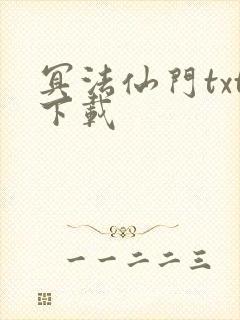 冥法仙門txt
下載
一一二二三